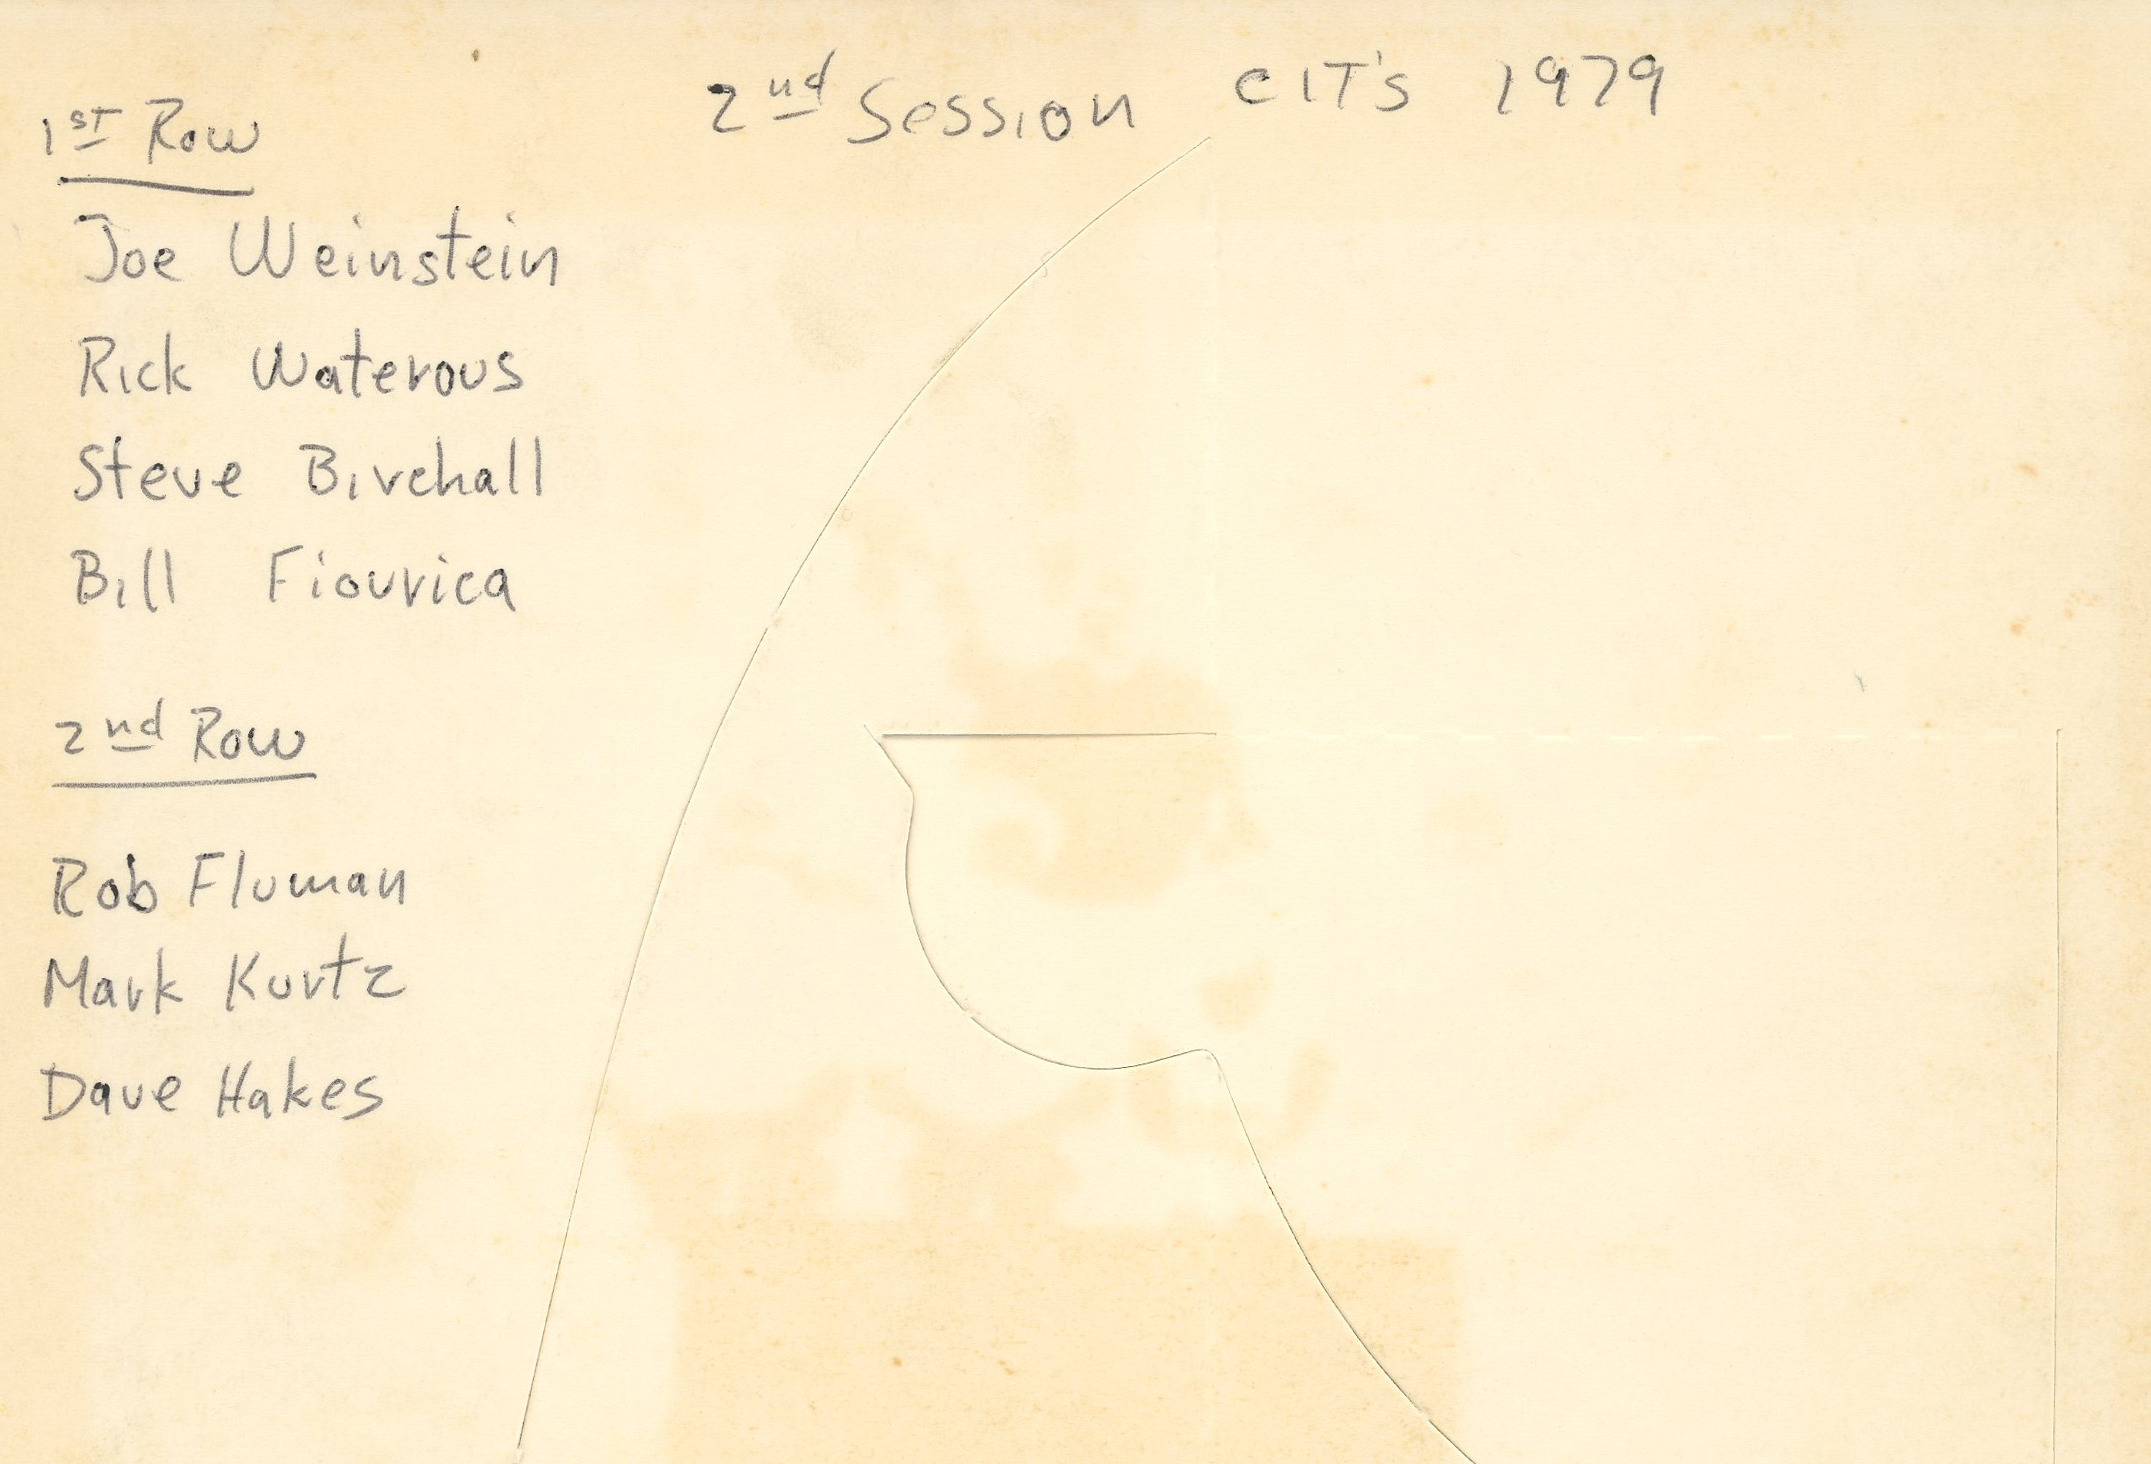 2nd Session CIT's 1979
1st Row
Joe Weinstein
Rick Waterous
Steve Birchall
Bill Fiourica
2nd Row
Rob Fluman
Mark Kurtz
Dave Hakes